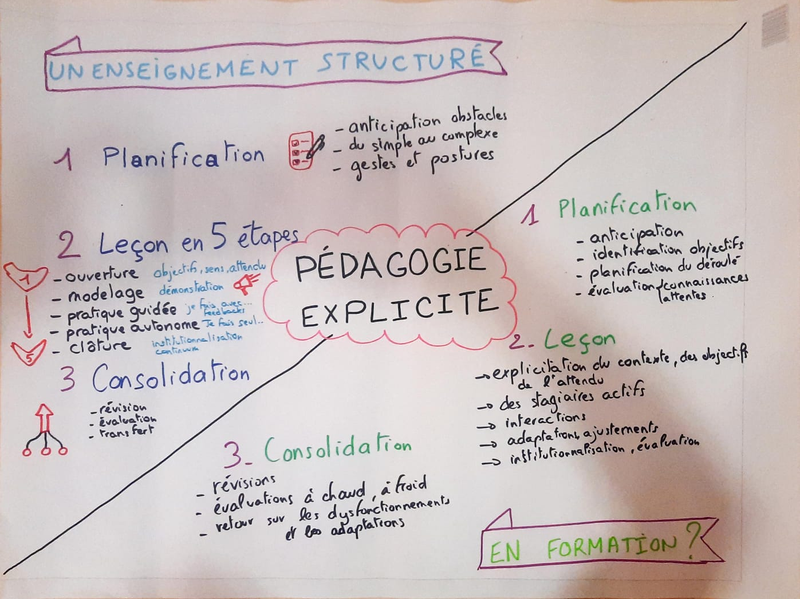 UN ENSEIGNEMENT STRUCTURÉ
1 Planification
- anticipation obstacles
- du simple au complexe
- gestes et postures
2 Leçon en 5 étapes
1
- ouverture objectifs, sens, attendu
- modelage démonstration
- pratique guidée je fais avec... feedbacks
- pratique autonome Je fais seul...
- clôture institutionnalisation
5
3 Consolidation
- révision
- évaluation
- transfert
PÉDAGOGIE
EXPLICITE
1 Planification
- anticipation
- identification objectifs
- planification du déroulé
- évaluation/connaissances
attentes.
2- Leçon
→ explicitation du contexte, des objectifs
de l'attendu
→ des stagiaires actifs
→ interactions
→ adaptations, ajustements
→ institutionnalisation, évaluation
3- Consolidation
- révisions
- évaluations à chaud, à froid
- retour sur les dysfonctionnements
et les adaptations
EN FORMATION ?